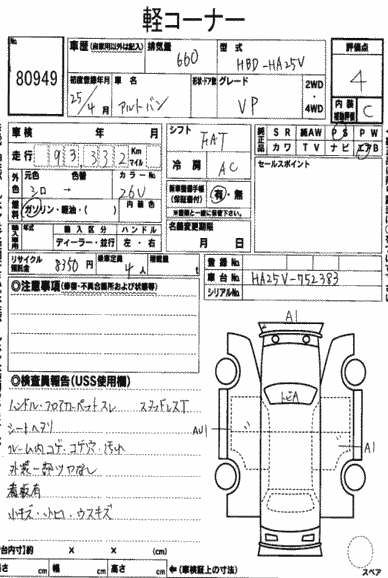 軽コーナー
No.
80949
車歴 (自家用以外は記入)
排気量
660
型式
HBD-HA25V
評価点
4
初度登録年月
25/4月
車名
アルトバン
形状・ドア数
グレード
VP
2WD
・
4WD
内装
C
車検 年 月
走行 93,332 Km
マイル
シフト
FAT
冷房
AC
純正品
SR 純AW PS PW
カワ TV ナビ エアB
セールスポイント
外色
元色 色替 カラーNo.
シロ → 26U
燃料
ガソリン・軽油・( )
内装色
新車登録手帳
(保証書付)
有・無
※書類と一緒に保管下さい。
輸入車用
年式
輸入区分 ハンドル
ディーラー・並行 左・右
名義変更期限
月 日
リサイクル
預託金
8350円
乗車定員
4人
積載量
t
登録No.
車台No. HA25V-752383
シリアルNo.
◎注意事項(修復・不具合箇所および状態等)
◎検査員報告(USS使用欄)
ハンドル・フロアカーペットスレ スタッドレスT
シートヘタリ
ルーム内コゲ・コゲ穴・汚れ
外装一部ツヤなし
看板有
小キズ・小凹・ウスキズ
A1
トビA
AU1
A1
台内寸)約 × × (cm)
長さ cm 幅 cm 高さ cm ←(車検証上の寸法)
スペア